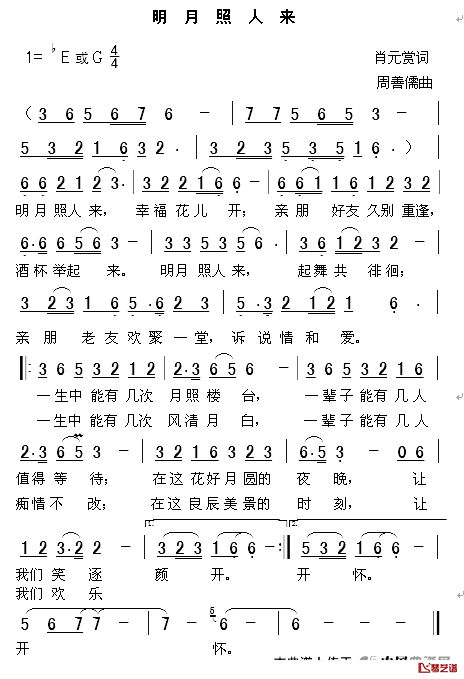 明月照人来
1= ♭E 或G 4/4 肖元赏词
周善儒曲
( 3 6 | 5 6 7 6 - | 7 7 5 6 5 3 |
5 3 2 1 6 3 2 · | 2 3 2 5 3 5 1 6 · ) |
6 6 2 1 2 3 · | 3 2 2 1 6 6 - | 6 6 1 1 6 1 2 3 2 |
明月照人来， 幸福花儿开；亲朋好友久别重逢，
6 · 6 6 5 6 3 | 3 3 2 3 6 - | 3 6 1 2 3 2 |
酒杯举起来。明月照人来， 起舞共徘徊；
3 2 3 2 1 6 | 5 · 6 2 6 | 5 · 3 2 3 1 2 1 6 · |
亲朋老友欢聚一堂，诉说情和爱。
3 6 5 3 2 1 2 | 2 · 3 6 6 5 - | 3 6 5 3 2 1 6 |
一生中能有几次月照楼台， 一辈子能有几人
一生中能有几次风清月白， 一辈子能有几人
2 · 3 6 5 - | 3 2 1 6 3 2 3 | 6 · 5 3 - 0 6 |
值得等待；在这花好月圆的夜晚，让
痴情不改；在这良辰美景的时刻，让
1 2 3 · 2 2 - | 1. 3 2 3 1 6 6 - :| 2. 5 3 5 1 6 6 - |
我们笑逐颜开。开怀。
我们欢乐
5 6 7 7 - | 7 - 5 6 - | 6 - - - |
开怀。
琴艺谱